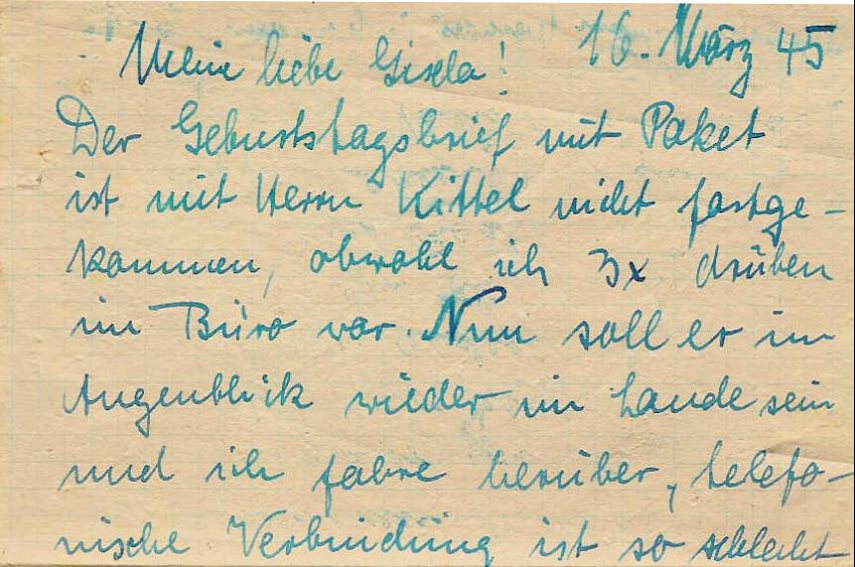 16. März 45
Meine liebe Gisela!
Der Geburtstagsbrief mit Paket
ist mit Herrn Kittel nicht fortge-
kommen, obwohl ich 3x drüben
im Büro war. Nun soll er im
Augenblick wieder im Lande sein
und ich fahre herüber, telefo-
nische Verbindung ist so schlecht